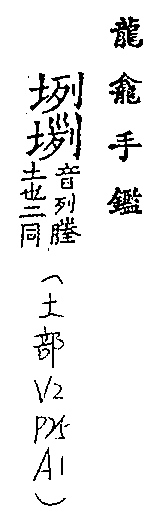 龍龕手鑑
𡊻㙹
音列塍
土也二同
(土部
V2
P25
A1)